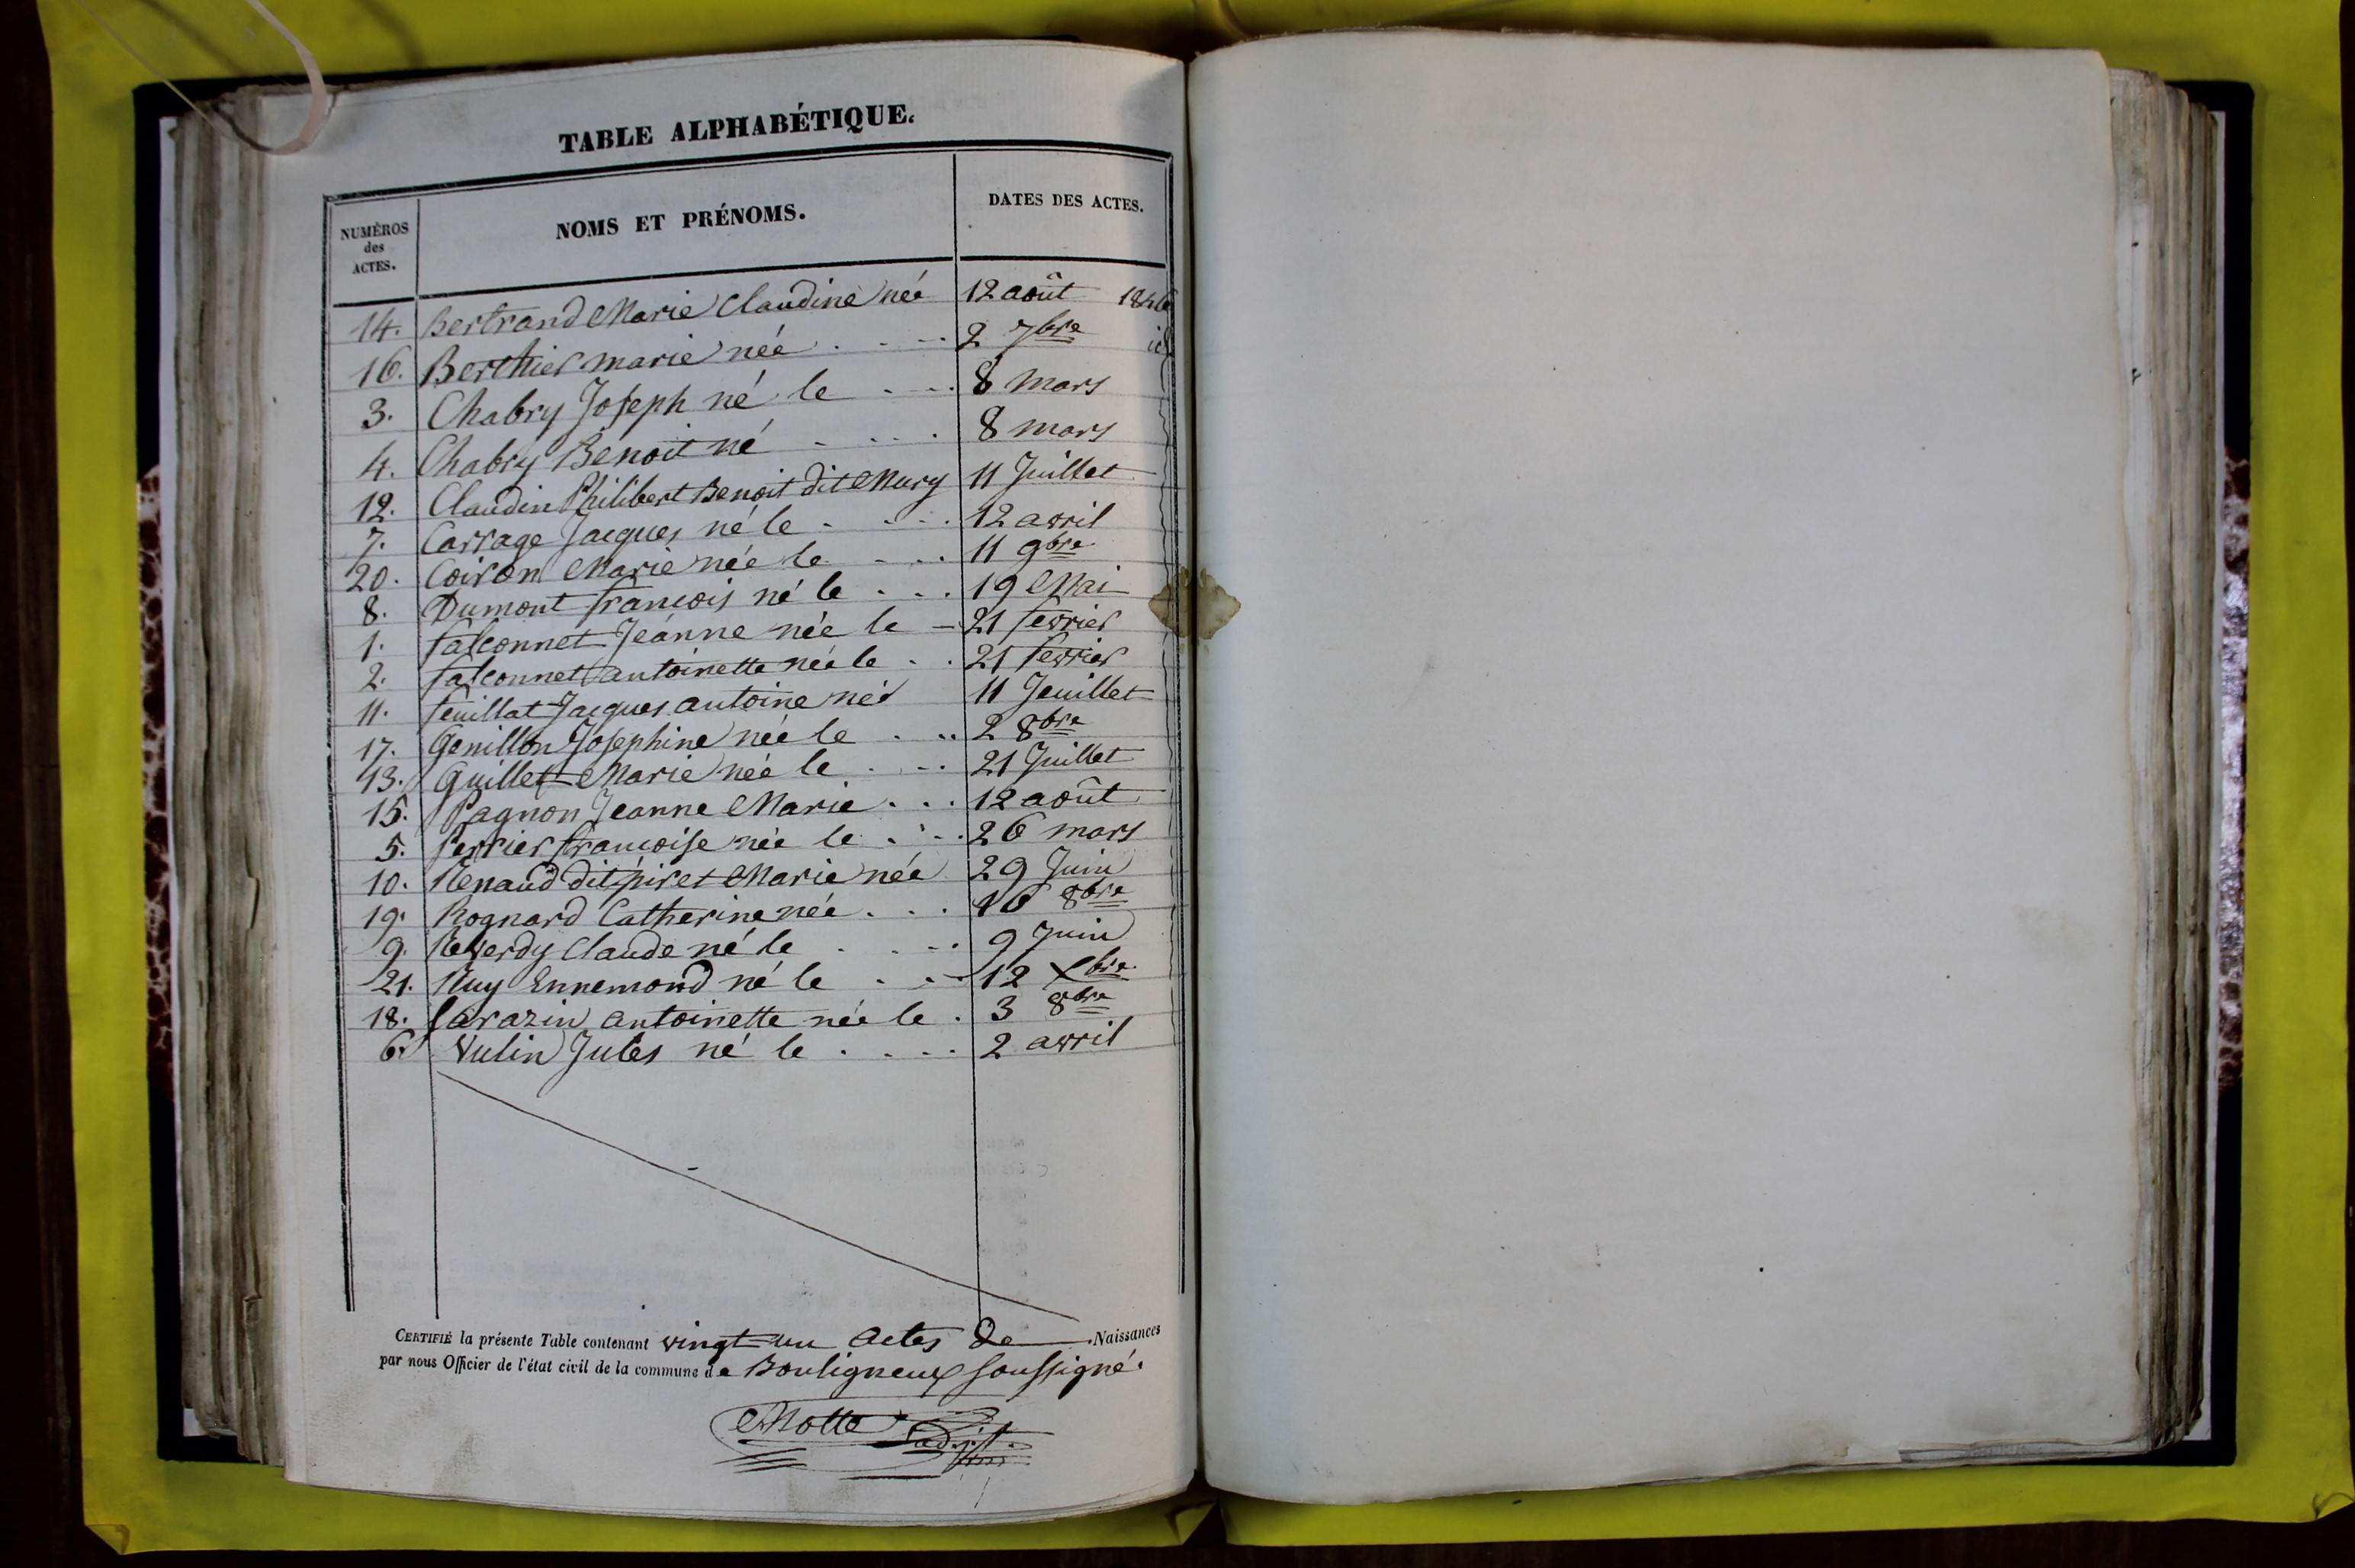 TABLE ALPHABÉTIQUE.
NUMÉROS des ACTES. NOMS ET PRÉNOMS. DATES DES ACTES.
14. Bertrand Marie Claudine née 12 août 1846
16. Berthier marie née . . . . 2 7bre id
3. Chabry Joseph né le . . . 8 mars
4. Chabry Benoit né . . . . 8 mars
12. Claudin Philibert Benoit dit Mury 11 Juillet
7. Carrage Jacques né le . . . . 12 avril
20. Coiron Marie née le . . . 11 9bre
8. Dumont françois né le . . . 19 Mai
1. falconnet Jeanne née le — 21 fevrier
2. falconnet antoinette née le . . 21 fevrier
11. feuillat Jacques antoine né 11 Jeuillet
17. Genillon Josephine née le . .. 2 8bre
13. Guillet Marie née le . . . 21 Juillet
15. Pagnon Jeanne Marie . . . 12 août
5. Perrier françoise née le . . . . 26 mars
10. Renaud dit piret Marie née 29 Juin
19. Rognard Catherine née . . . 16 8bre
9. Reverdy Claude né le . . . . 9 Juin
21. Ruy Ennemond né le . . . 12 Xbre
18. Sarazin antoinette née le . 3 8bre
6. Vulin Jules né le . . . . 2 avril
CERTIFIÉ la présente Table contenant vingt-un actes de Naissances
par nous Officier de l'état civil de la commune de Bouligneux soussigné.
Motte adjt.